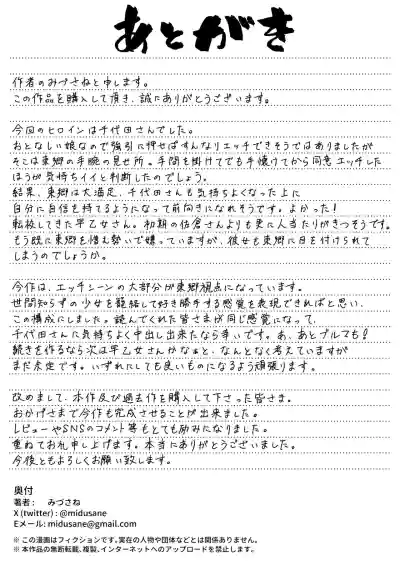 あとがき
作者のみづさねと申します。
この作品を購入して頂き、誠にありがとうございます。
今回のヒロインは千代田さんでした。
おとなしい娘なので強引に押せばすんなりエッチできそうではありましたが
そこは東郷の手腕の見せ所。手間を掛けてでも手懐けてから同意エッチした
ほうが気持ちイイと判断したのでしょう。
結果、東郷は大満足、千代田さんも気持ちよくなった上に
自分に自信を持てるようになって前向きになれそうです。よかった！
転校してきた早乙女さん。初期の佐倉さんよりも更に人当たりがきつそうです。
もう既に東郷を憎え勢いで嫌っていますが、彼女も東郷に目を付けられて
しまうのでしょうか。
今作は、エッチシーンの大部分が東郷視点になっています。
世間知らずの少女を籠絡して好き勝手する感覚を表現できればと思い、
この構成にしました。読んでくれた皆さまが同じ感覚になって、
千代田さんに気持ちよく中出し出来たなら幸いです。あ、あとブルマも！
続きを作るなら次は早乙女さんかなぁと、なんとなく考えていますが
まだ未定です。いずれにしても良いものになるよう頑張ります。
改めまして、本作及び過去作を購入して下さった皆さま。
おかげさまで今作も完成させることが出来ました。
レビューやSNSのコメント等もとても励みになりました。
重ねてお礼申し上げます。本当にありがとうございました。
今後ともよろしくお願い致します。
奥付
著者： みづさね
X (twitter) : @midusane
Eメール: midusane@gmail.com
※ この漫画はフィクションです。実在の人物や団体などとは関係ありません。
※ 本作品の無断転載、複製、インターネットへのアップロードを禁止します。